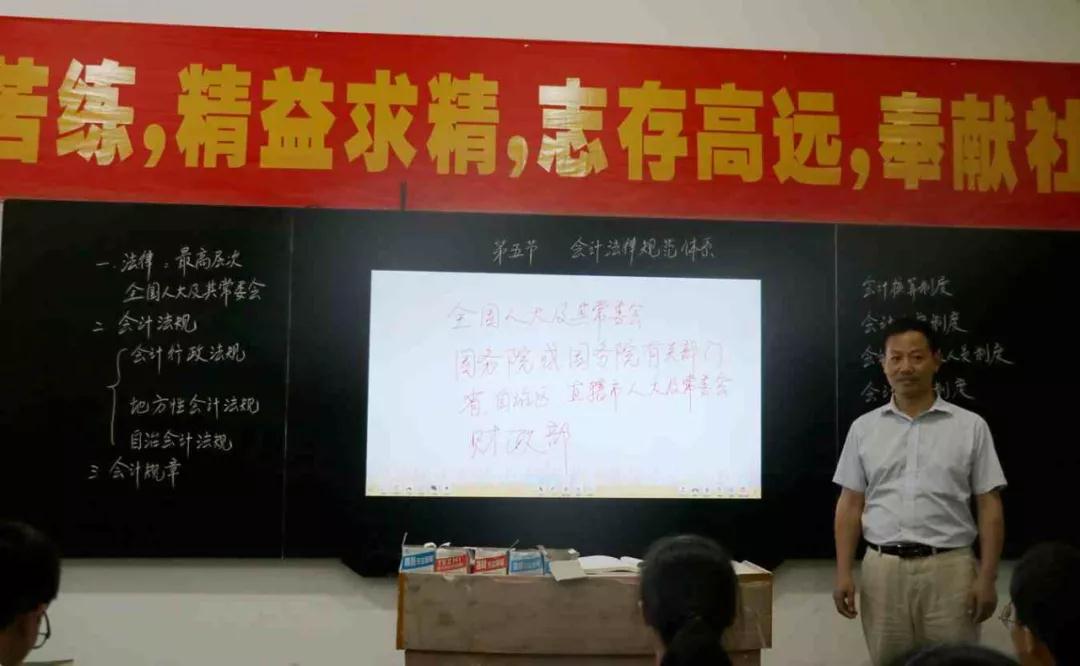 苦练,精益求精,志存高远,奉献社
一.法律:最高层次
全国人大及其常委会
二 会计法规
会计行政法规
地方性会计法规
自治会计法规
三 会计规章
第五节 会计法律规范体系
全国人大及其常委会
国务院或国务院有关部门
省、自治区 直辖市人大及常委会
财政部
会计核算制度
会计 制度
会 人员制度
会 制度